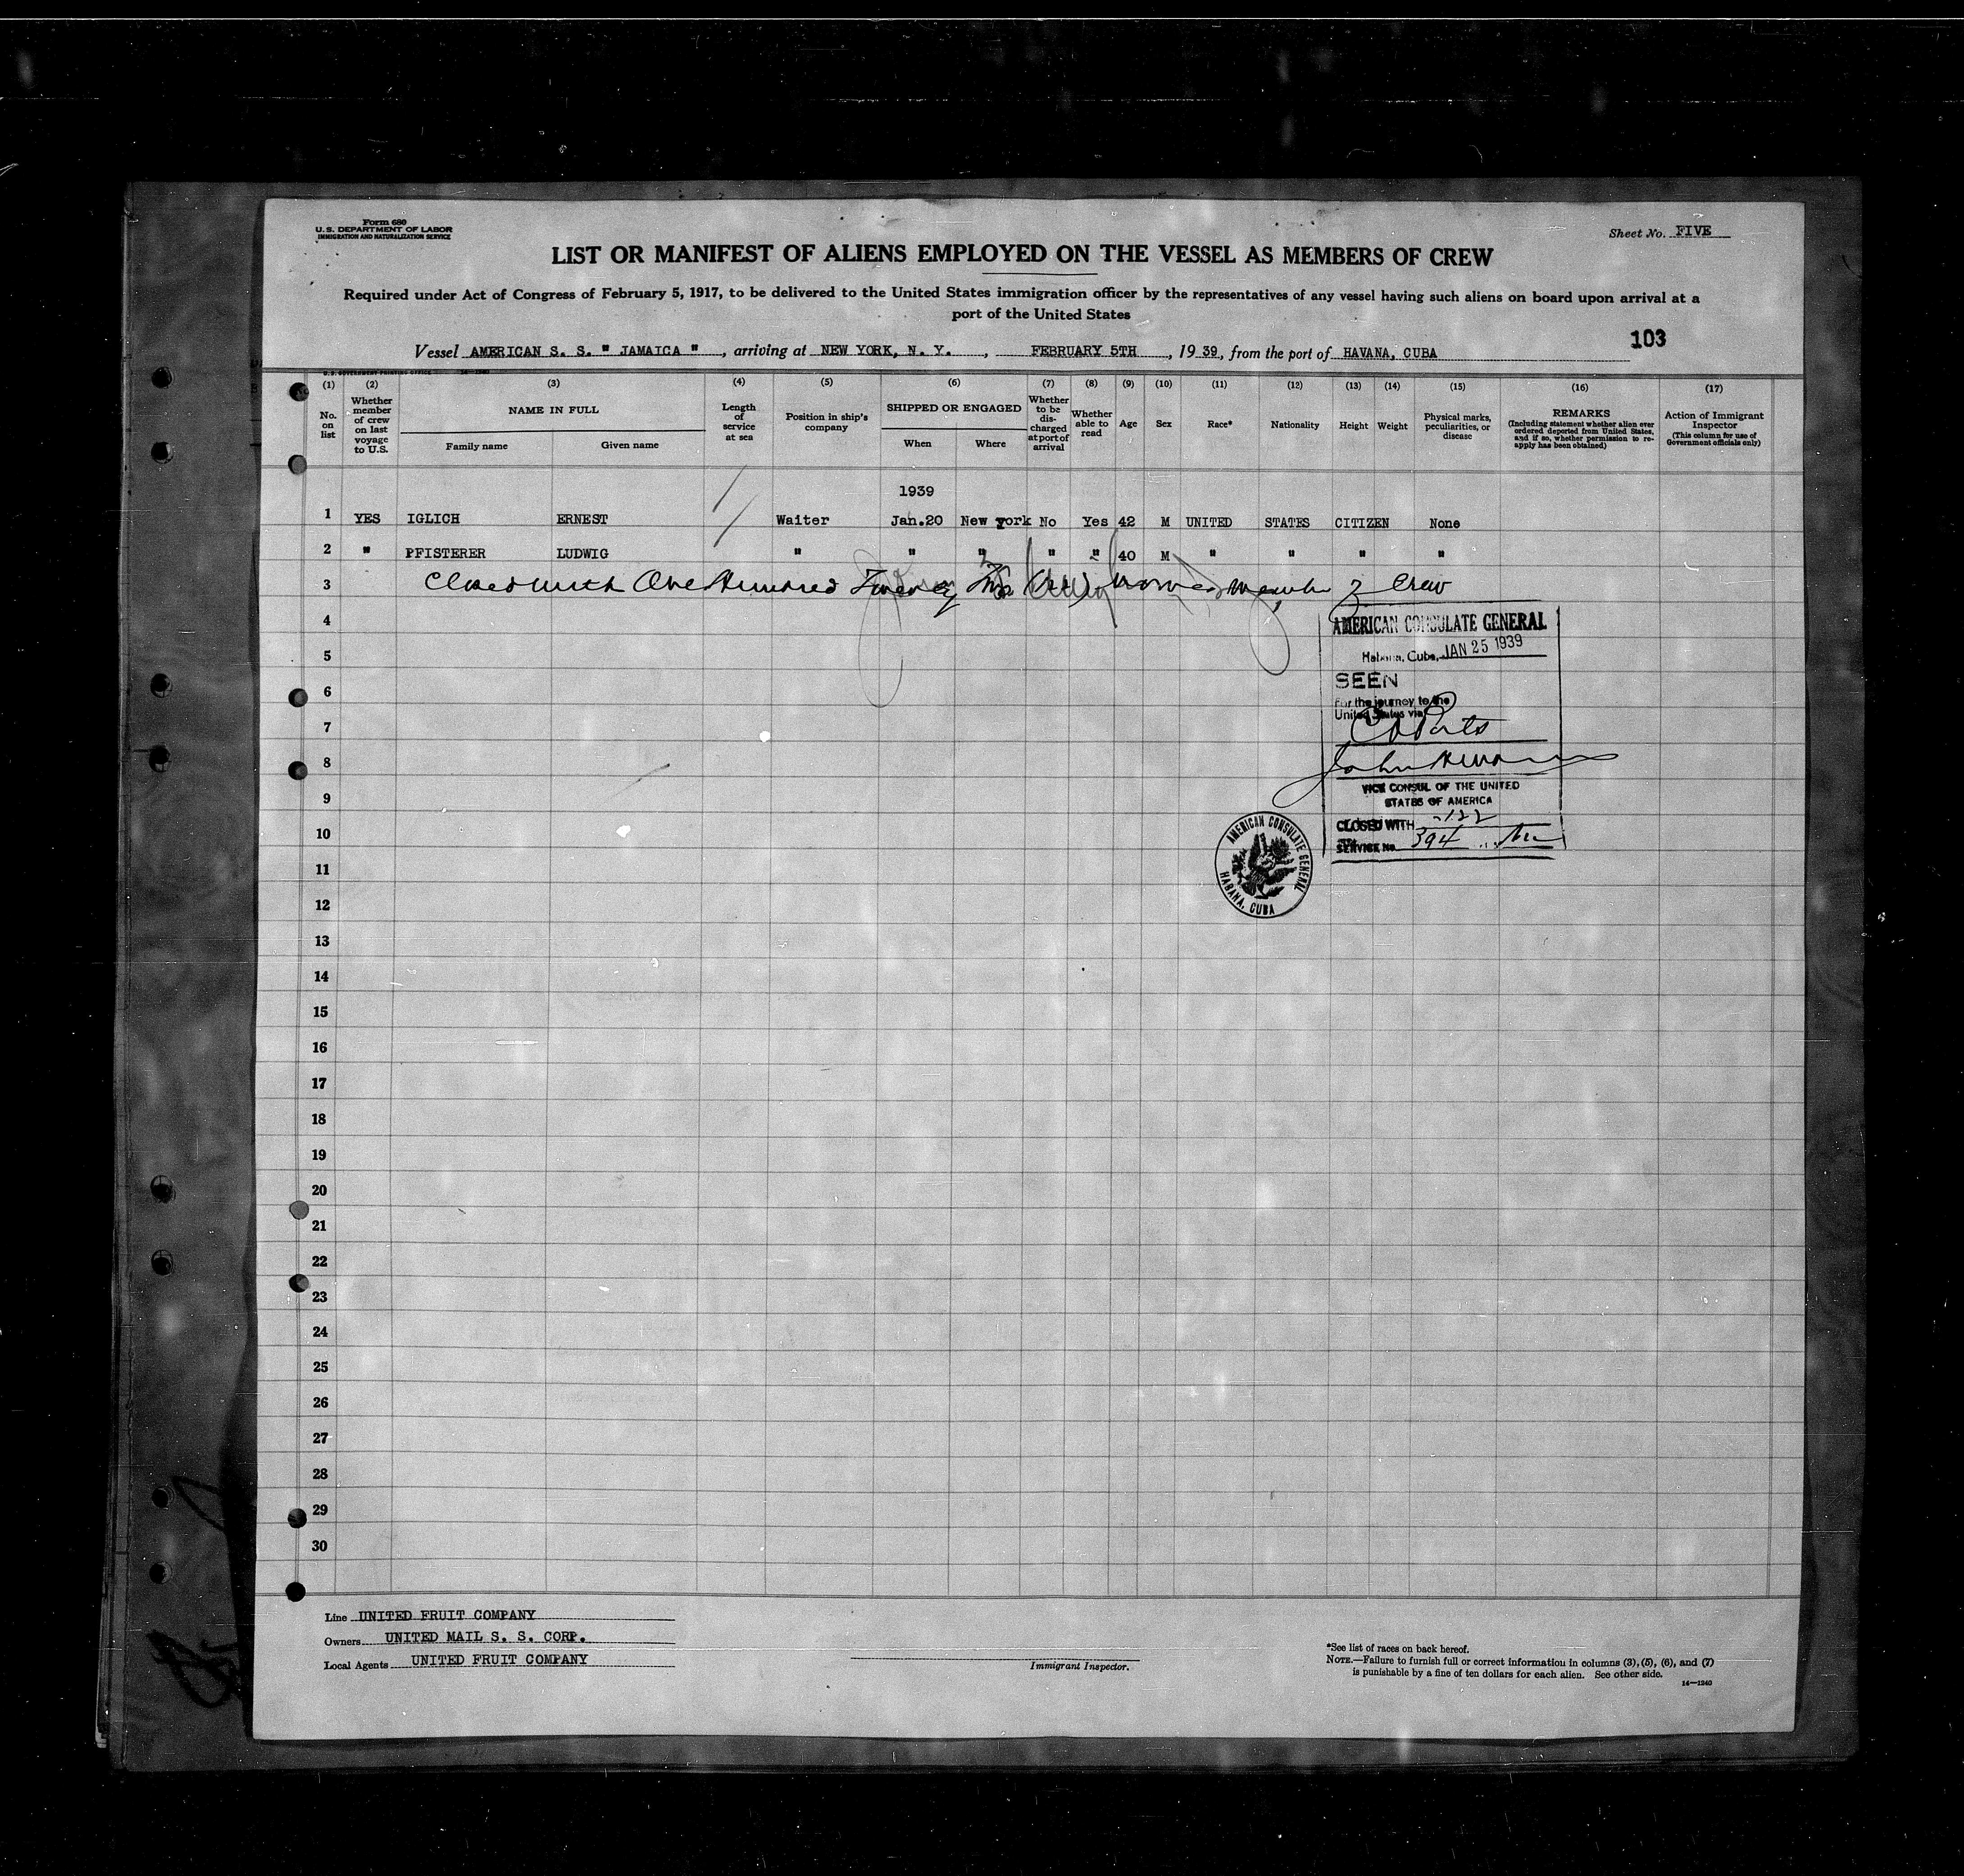 Form 680
U. S. DEPARTMENT OF LABOR
IMMIGRATION AND NATURALIZATION SERVICE
Sheet No. FIVE
LIST OR MANIFEST OF ALIENS EMPLOYED ON THE VESSEL AS MEMBERS OF CREW
Required under Act of Congress of February 5, 1917, to be delivered to the United States immigration officer by the representatives of any vessel having such aliens on board upon arrival at a
port of the United States
103
Vessel AMERICAN S. S. " JAMAICA ", arriving at NEW YORK, N. Y., FEBRUARY 5TH, 19 39, from the port of HAVANA, CUBA
U. S. GOVERNMENT PRINTING OFFICE 14—1240
(1) (2) (3) (4) (5) (6) (7) (8) (9) (10) (11) (12) (13) (14) (15) (16) (17)
No. on list
Whether member of crew on last voyage to U.S.
NAME IN FULL
Family name Given name
Length of service at sea
Position in ship's company
SHIPPED OR ENGAGED
When Where
Whether to be discharged at port of arrival
Whether able to read
Age
Sex
Race*
Nationality
Height
Weight
Physical marks, peculiarities, or disease
REMARKS
(Including statement whether alien ever ordered deported from United States, and if so, whether permission to reapply has been obtained)
Action of Immigrant Inspector
(This column for use of Government officials only)
1939
1 YES IGLICH ERNEST Waiter Jan.20 New york No Yes 42 M UNITED STATES CITIZEN None
2 " PFISTERER LUDWIG " " " " " 40 M " " " "
3 Closed with One Hundred Twenty Two (122) names member of Crew
4
5
6
7
8
9
10
11
12
13
14
15
16
17
18
19
20
21
22
23
24
25
26
27
28
29
30
AMERICAN CONSULATE GENERAL
Habana, Cuba, JAN 25 1939
SEEN
For the journey to the
United States via
John
VICE CONSUL OF THE UNITED
STATES OF AMERICA
CLOSED WITH -122
SERVICE No. 394
AMERICAN CONSULATE GENERAL
HABANA, CUBA
Line UNITED FRUIT COMPANY
Owners UNITED MAIL S. S. CORP.
Local Agents UNITED FRUIT COMPANY
Immigrant Inspector.
*See list of races on back hereof.
NOTE.—Failure to furnish full or correct information in columns (3), (5), (6), and (7)
is punishable by a fine of ten dollars for each alien. See other side.
14—1240